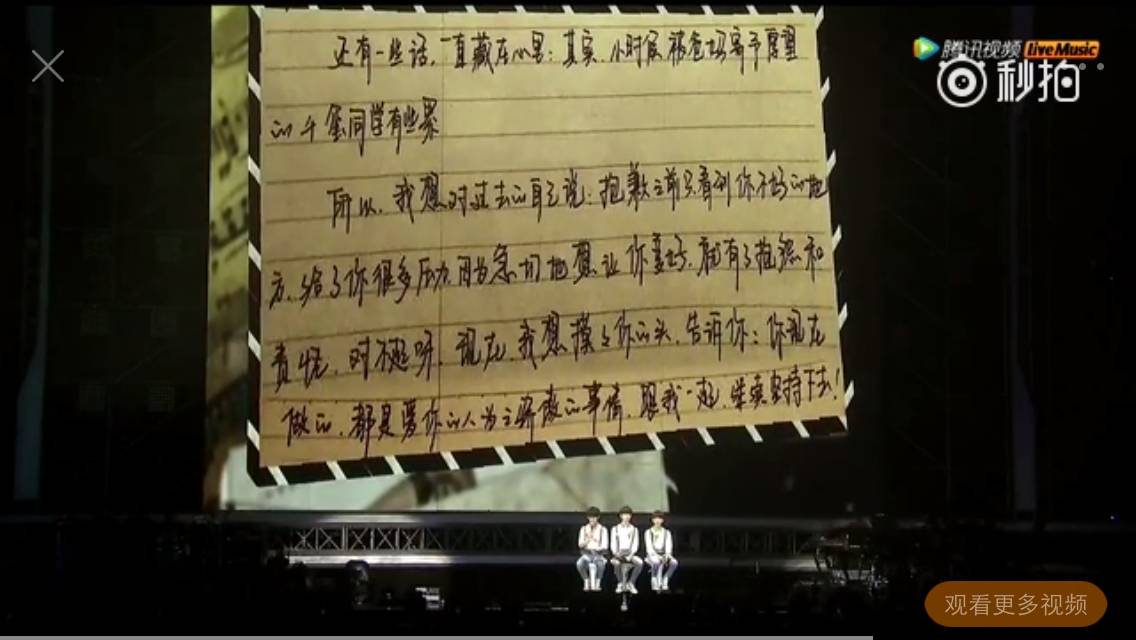 腾讯视频 Live Music
秒拍
还有一些话,一直藏在心里:其实,小时候被爸妈寄予厚望
的千玺同学有些累
所以,我想对过去的自己说:抱歉之前只看到你不好的地
方,给了你很多压力,因为急切地想让你变好,就有了抱怨和
责怪,对不起呀,现在,我想摸々你的头,告诉你:你现在
做的,都是爱你的人为之骄傲的事情,跟我一起,继续坚持下去!
观看更多视频